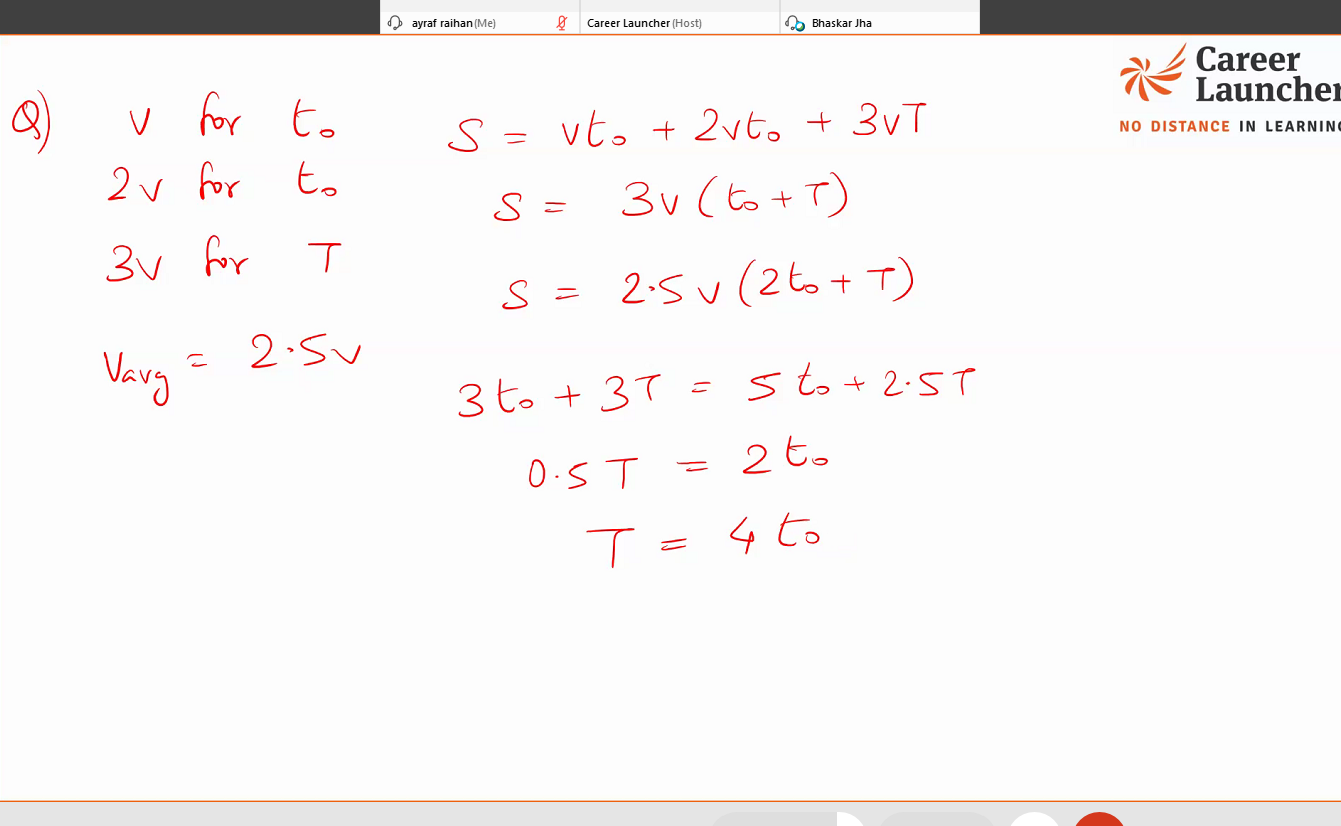 ayraf raihan (Me) Career Launcher (Host) Bhaskar Jha
Career
Launcher
NO DISTANCE IN LEARNING
Q) v for t₀
2v for t₀
3v for T
Vavg = 2.5v
S = vt₀ + 2vt₀ + 3vT
S = 3v (t₀ + T)
S = 2.5v (2t₀ + T)
3t₀ + 3T = 5t₀ + 2.5T
0.5T = 2t₀
T = 4t₀